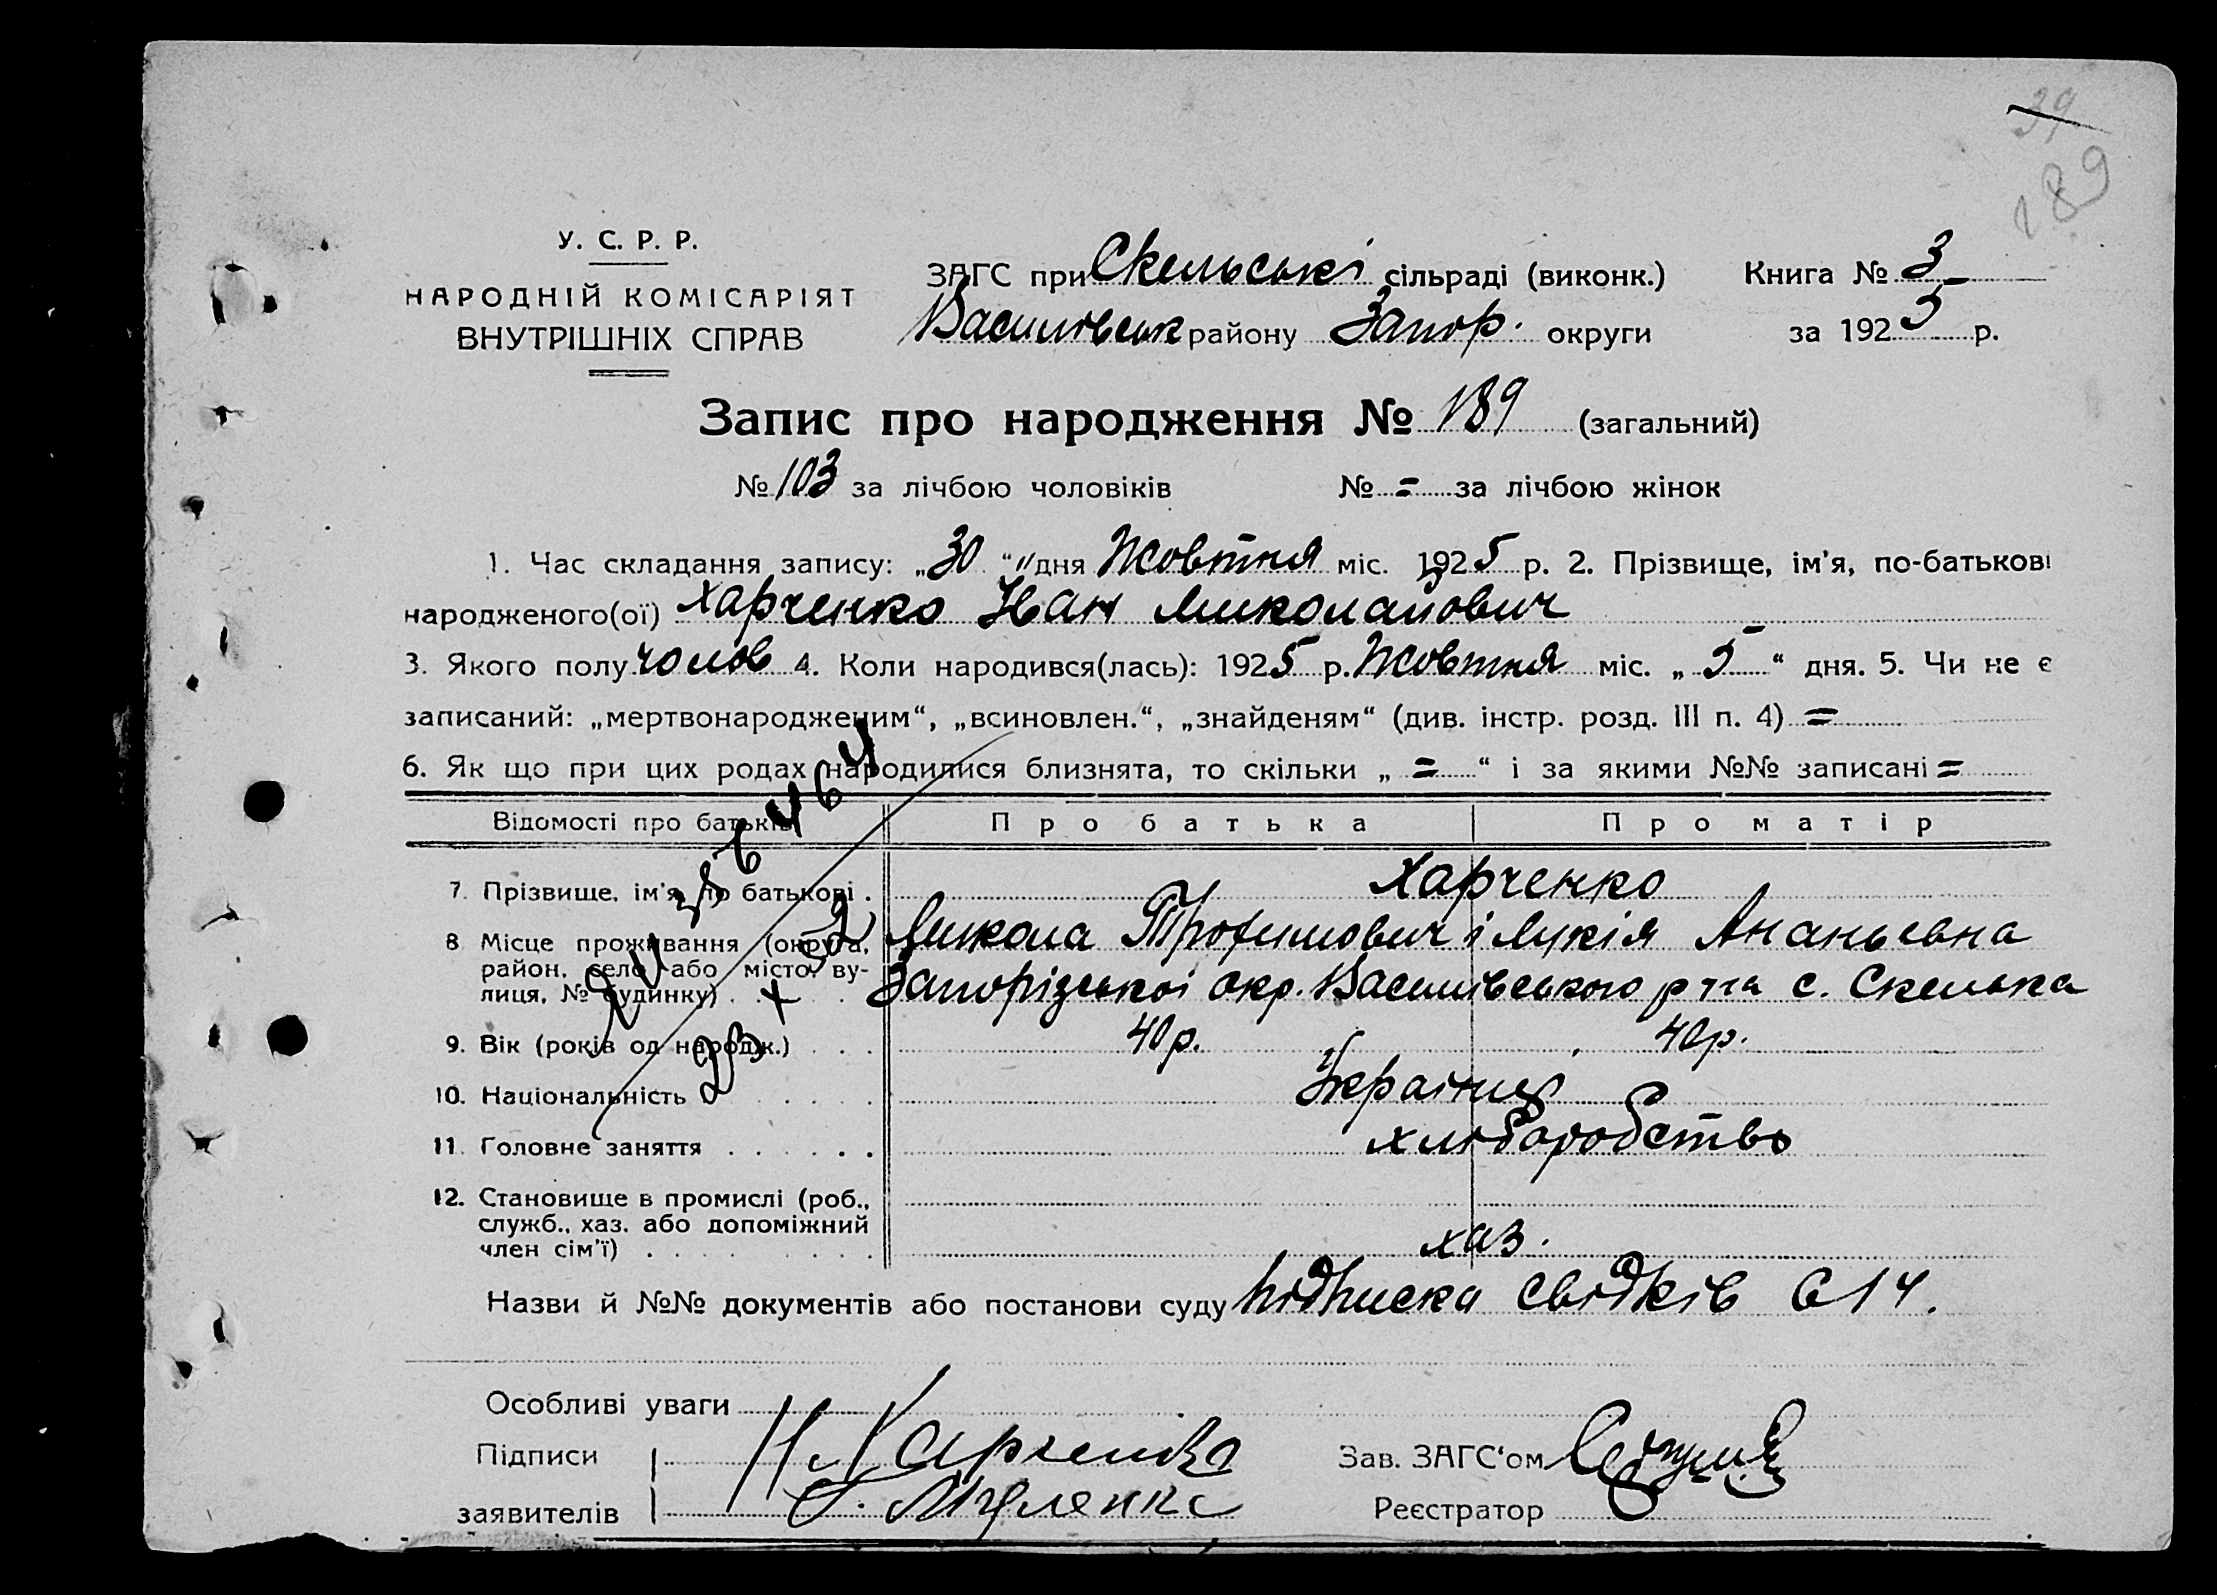 39
189
У. С. Р. Р.
НАРОДНІЙ КОМІСАРІЯТ
ВНУТРІШНІХ СПРАВ
ЗАГС при Скельські сільраді (виконк.) Книга № 3
Василівськ району Запор. округи за 1925 р.
Запис про народження № 189 (загальний)
№ 103 за лічбою чоловіків № = за лічбою жінок
1. Час складання запису: „30“ дня Жовтня міс. 1925 р. 2. Прізвище, ім'я, по-батькові
народженого(ої) Харченко Іван Миколайович
3. Якого полу чолов 4. Коли народився(лась): 1925 р. Жовтня міс. „5“ дня. 5. Чи не є
записаний: „мертвонародженим“, „всиновлен.“, „знайденям“ (див. інстр. розд. III п. 4) =
6. Як що при цих родах народилися близнята, то скільки „ = “ і за якими №№ записані =
Відомості про батьків Про батька Про матір
7. Прізвище, ім'я, по батькові . Харченко
Микола Трофимович і Лукія Ананьевна
8 Місце проживання (округа,
район, село або місто, ву-
лиця, № будинку) . . . Запорізькоі окр. Василівського р на с. Скелька
9. Вік (років од народж.) . . . 40 р. 40 р.
10. Національність . . . . . Українці
11. Головне заняття . . . . . . хліборобство
12. Становище в промислі (роб.,
служб., хаз. або допоміжний
член сім'ї) . . . . . . . . . хаз.
Назви й №№ документів або постанови суду підписка свідків 614.
Особливі уваги
Підписи Н Харченко Зав. ЗАГС'ом
заявителів Реєстратор